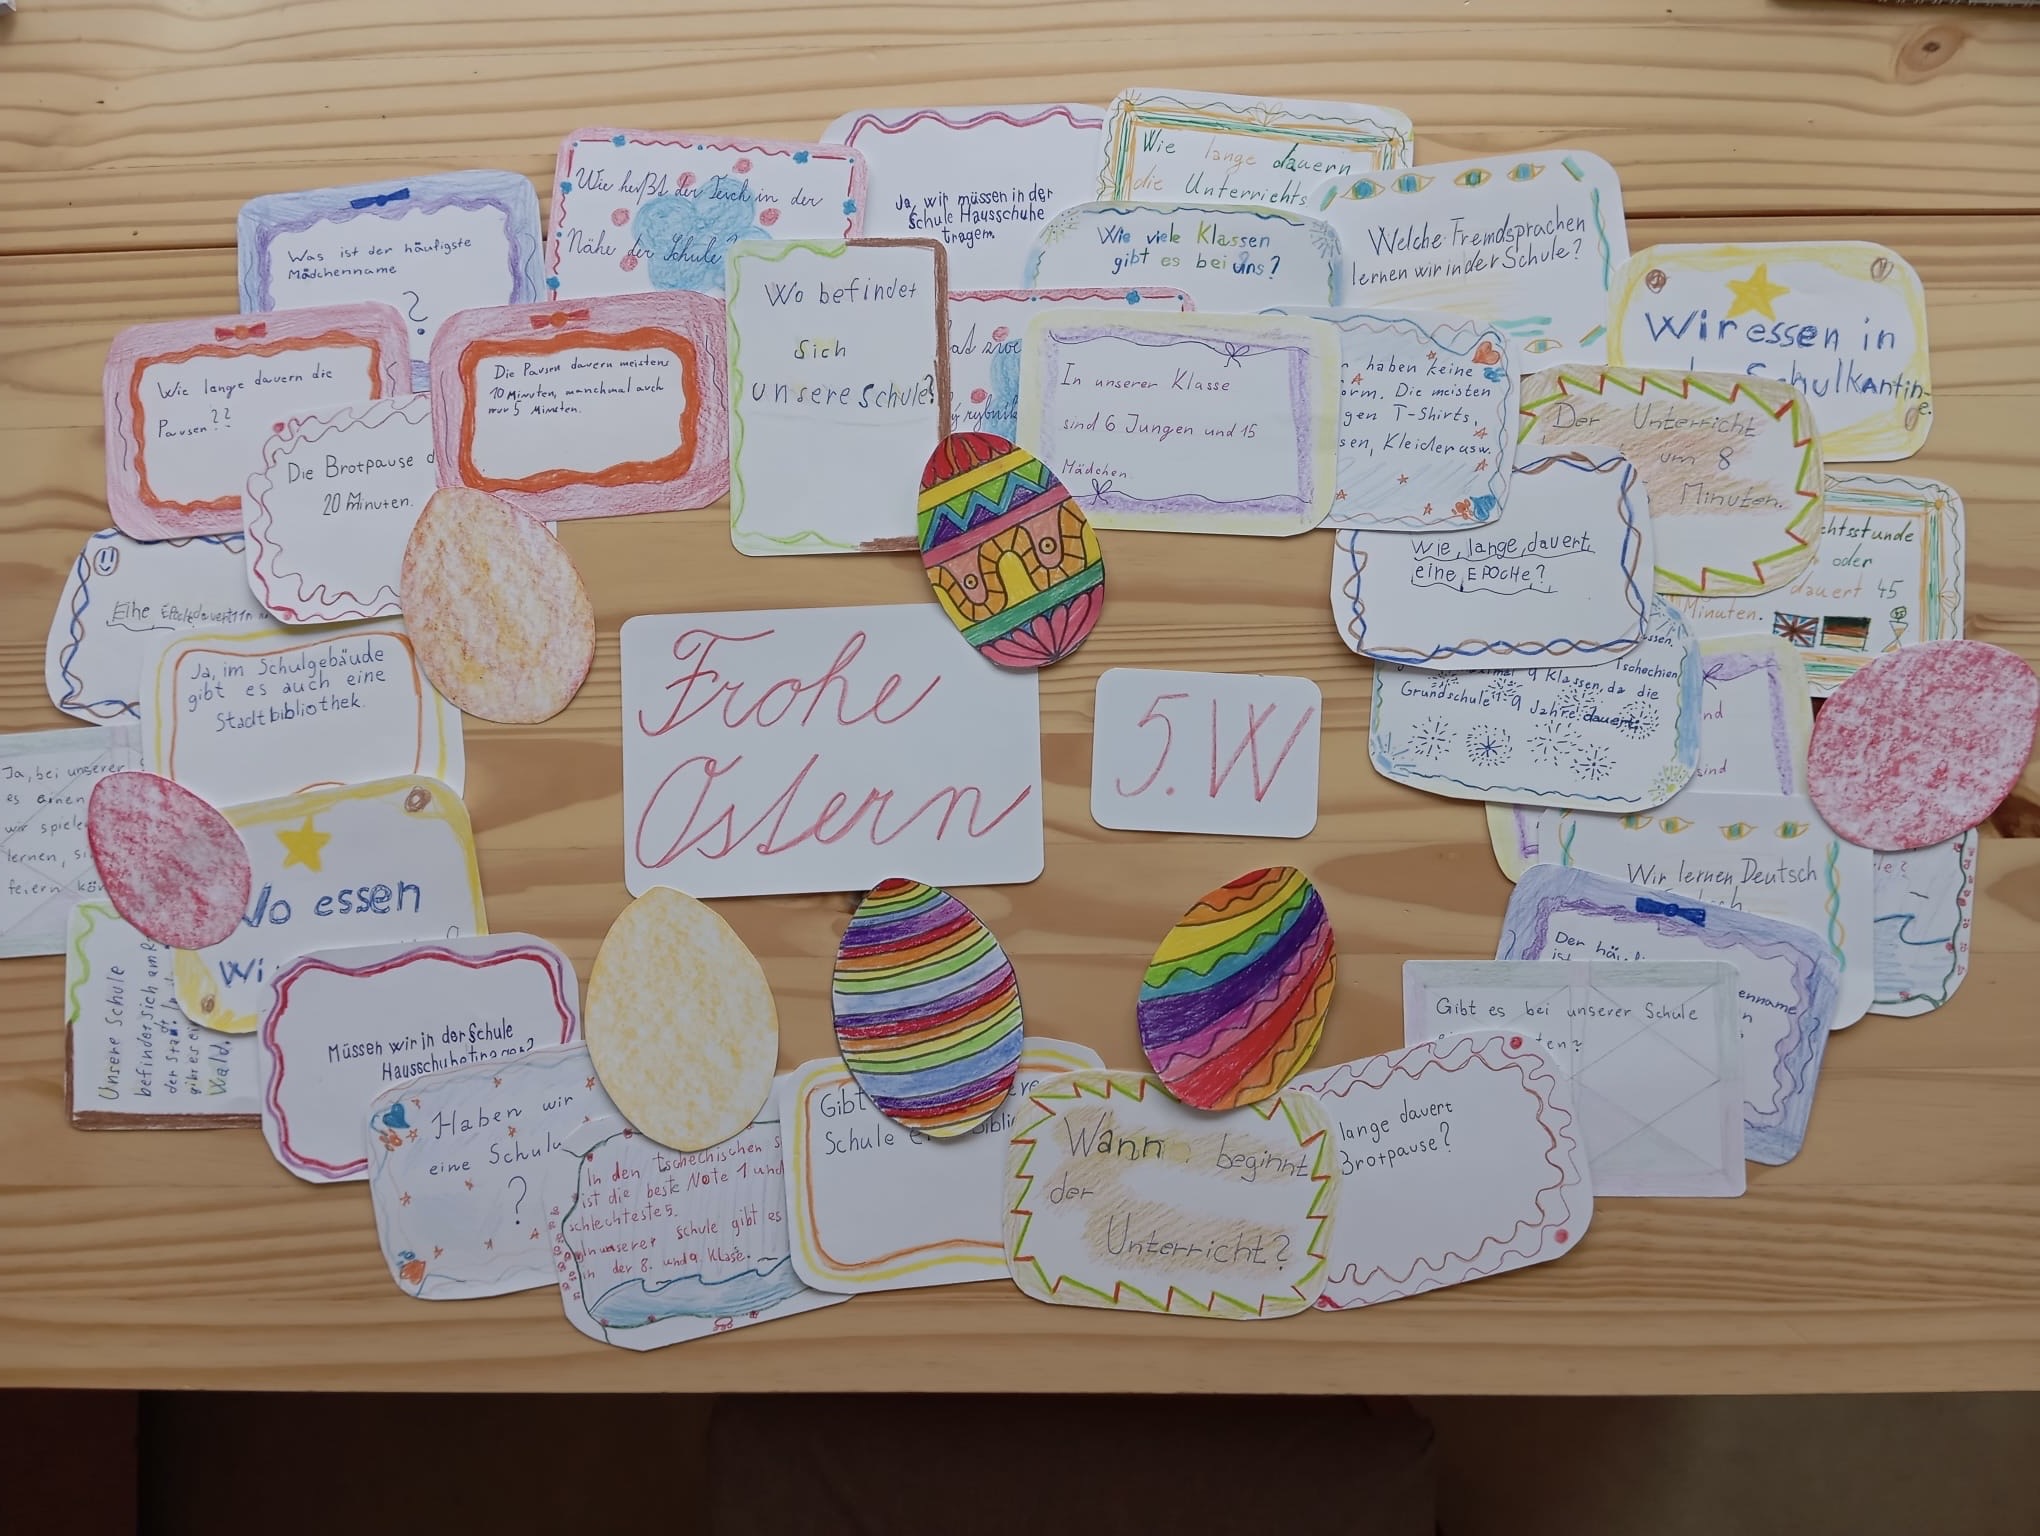 Was ist der häufigste
Mädchenname
?
Wie heißt der Teich in der
Nähe der Schule?
Ja, wir müssen in der
Schule Hausschuhe
tragen.
Wie lange dauern
die Unterrichts
Wie viele Klassen
gibt es bei uns?
Welche Fremdsprachen
lernen wir in der Schule?
Wir essen in
Schulkantin-
e.
Wie lange dauern die
Pausen??
Die Pausen dauern meistens
10 Minuten, manchmal auch
nur 5 Minuten.
Wo befindet
sich
unsere Schule?
In unserer Klasse
sind 6 Jungen und 15
Mädchen.
haben keine
orm. Die meisten
gen T-Shirts,
sen, Kleider usw.
Der Unterricht
um 8
Minuten.
Die Brotpause d
20 Minuten.
Wie lange dauert
eine EPOCHE?
chtsstunde
oder
dauert 45
Minuten.
Eine
Ja, im Schulgebäude
gibt es auch eine
Stadtbibliothek.
Frohe
Ostern
5.W
ssen.
Tschechien
9 Klassen, da die
Grundschule 1-9 Jahre dauert.
nd
sind
Ja, bei unserer
es einen
wir spiele
lernen, si
feiern kön
Wo essen
wi
Wir lernen Deutsch
le?
Unsere Schule
befindet sich am R
der Stadt.
gibt es ei
Wald.
Müssen wir in der Schule
Hausschuhe tragen?
Der häu
ist
enname
Gibt es bei unserer Schule
ten?
Haben wir
eine Schulu
?
In den tschechischen s
ist die beste Note 1 und
schlechteste 5.
In unserer Schule gibt es
in der 8. und 9. Klasse.
Gibt
Schule
Wann beginnt
der
Unterricht?
lange dauert
Brotpause?